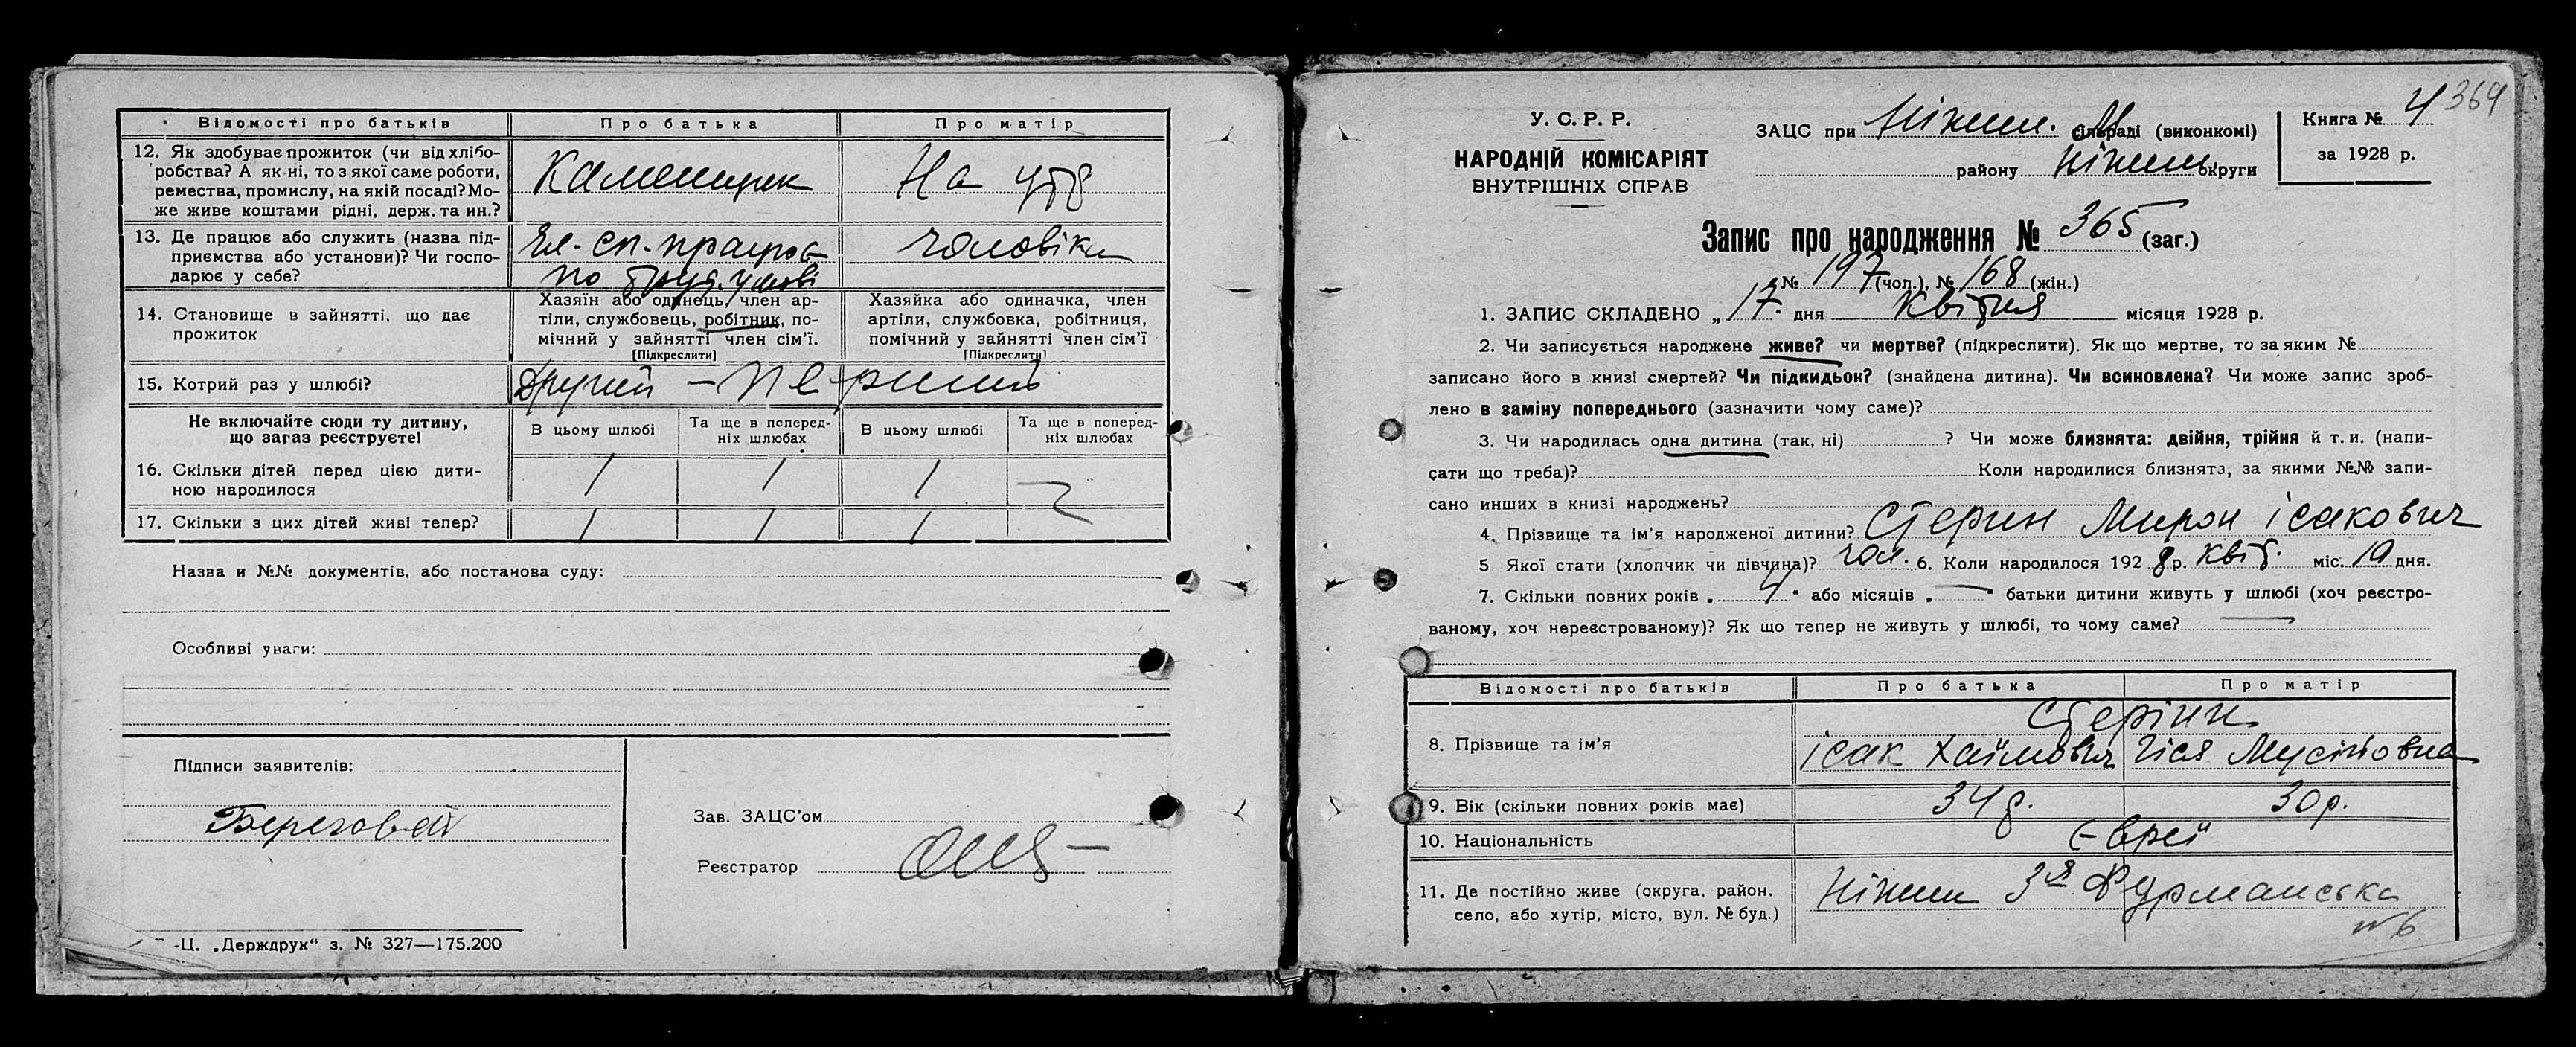 Відомості про батьків Про батька Про матір
12. Як здобуває прожиток (чи від хлібо-
робства? А як ні, то з якої саме роботи,
ремества, промислу, на якій посаді? Мо-
же живе коштами рідні, держ. та ин.?
Каменщик На утр
13. Де працює або служить (назва під-
приємства або установи)? Чи госпо-
дарює у себе?
Чл. сп. працює
по труд. умові
чоловіка
14. Становище в зайнятті, що дає
прожиток
Хазяїн або одинець, член ар-
тіли, службовець, робітник, по-
мічний у зайнятті член сім'ї.
[Підкреслити]
Хазяйка або одиначка, член
артіли, службовка, робітниця,
помічний у зайнятті член сім'ї
[Підкреслити]
15. Котрий раз у шлюбі? Другий – перший
Не включайте сюди ту дитину,
що загаз реєструєте!
В цьому шлюбі Та ще в поперед-
ніх шлюбах В цьому шлюбі Та ще в поперед-
ніх шлюбах
16. Скільки дітей перед цією дити-
ною народилося 1 1 1
17. Скільки з цих дітей живі тепер? 1 1 1
Назва и №№ документів, або постанова суду:
Особливі уваги:
Підписи заявителів:
Зав. ЗАЦС'ом
Реєстратор
-Ц. „Держдрук“ з. № 327—175.200
364
У. С. Р. Р.
НАРОДНІЙ КОМІСАРІЯТ
ВНУТРІШНІХ СПРАВ
ЗАЦС при Ніжин. М сільраді (виконкомі)
району Ніжин. округи
Книга № 4
за 1928 р.
Запис про народження № 365 (заг.)
№ 197 (чол.), № 168 (жін.)
1. ЗАПИС СКЛАДЕНО „17. дня Квітня місяця 1928 р.
2. Чи записується народжене живе? чи мертве? (підкреслити). Як що мертве, то за яким №
записано його в книзі смертей? Чи підкидьок? (знайдена дитина). Чи всиновлена? Чи може запис зроб-
лено в заміну попереднього (зазначити чому саме)?
3. Чи народилась одна дитина (так, ні) ? Чи може близнята: двійня, трійня й т. и. (напи-
сати що треба)? Коли народилися близнята, за якими №№ запи-
сано инших в книзі народжень?
4. Прізвище та ім'я народженої дитини? Стерин Мирон Ісакович
5 Якої стати (хлопчик чи дівчина)? чол. 6. Коли народилося 1928 р. квіт. міс. 10 дня.
7. Скільки повних років „4“ або місяців „—“ батьки дитини живуть у шлюбі (хоч реєстро-
ваному, хоч нереєстрованому)? Як що тепер не живуть у шлюбі, то чому саме?
Відомості про батьків Про батька Про матір
Стерінн
8. Прізвище та ім'я Ісак Хаїмович Гіся Мусіївовна
9. Вік (скільки повних років має) 34 р. 30 р.
10. Національність Єврей
11. Де постійно живе (округа, район,
село, або хутір, місто, вул. № буд.)
Ніжин 3я Фурманська
№ 6